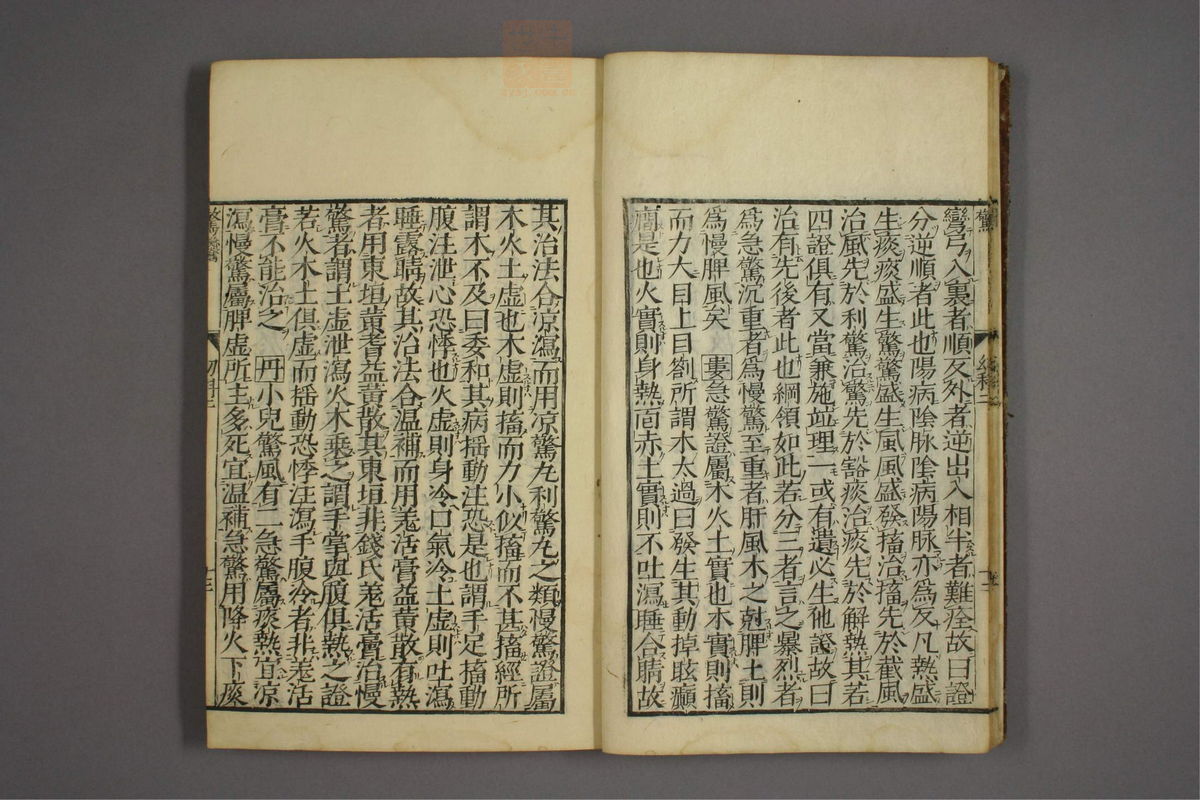 彎弓入裏者順反外者逆出入相半者難痊故曰證
分逆順者此也陽病陰脉陰病陽脉亦爲反凡熱盛
生痰痰盛生驚驚盛生風風盛發搐治搐先於截風
治風先於利驚治驚先於豁痰治痰先於解熱其若
四證俱有又當兼施並理一或有遺必生他證故曰
治有先後者此也綱領如此若分三者言之暴烈者
爲急驚沉重者爲慢驚至重者肝風木之尅脾土則
爲慢脾風矣 婁急驚證屬木火土實也木實則搐
而力大目上目劄所謂木太過曰發生其動掉眩癲
是也火實則身熱面赤土實則不吐瀉睡合睛故
其治法合凉瀉而用凉驚丸利驚丸之類慢驚證屬
木火土虛也木虛則搐而力小似搐而不甚搐經所
謂木不及曰委和其病揺動注恐是也謂手足搐動
腹注泄心恐悸也火虛則身冷口氣冷土虛則吐瀉
睡露睛故其治法合溫補而用羗活膏益黄散有熱
者用東垣黄耆益黄散其東垣非錢氏羗活膏治慢
驚者謂土虛泄瀉火木乘之謂手掌與腹俱熱之證
若火木土俱虛而揺動恐悸注瀉手腹冷者非羗活
膏不能治之 丹小兒驚風有二急驚屬痰熱宜凉
瀉慢驚屬脾虛所主多死宜溫補急驚用降火下痰